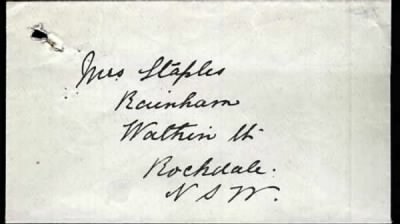 Mrs Staples
Rainham
Watkin St.
Rockdale.
N S W.